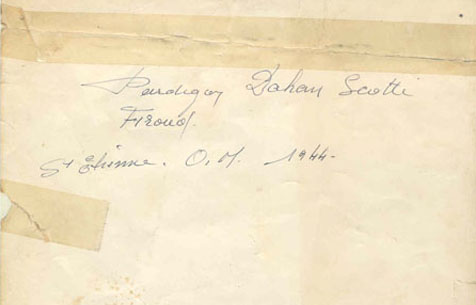 Pardigon Dahan Scotti
Firoud.
St Etienne. O.M. 1944-